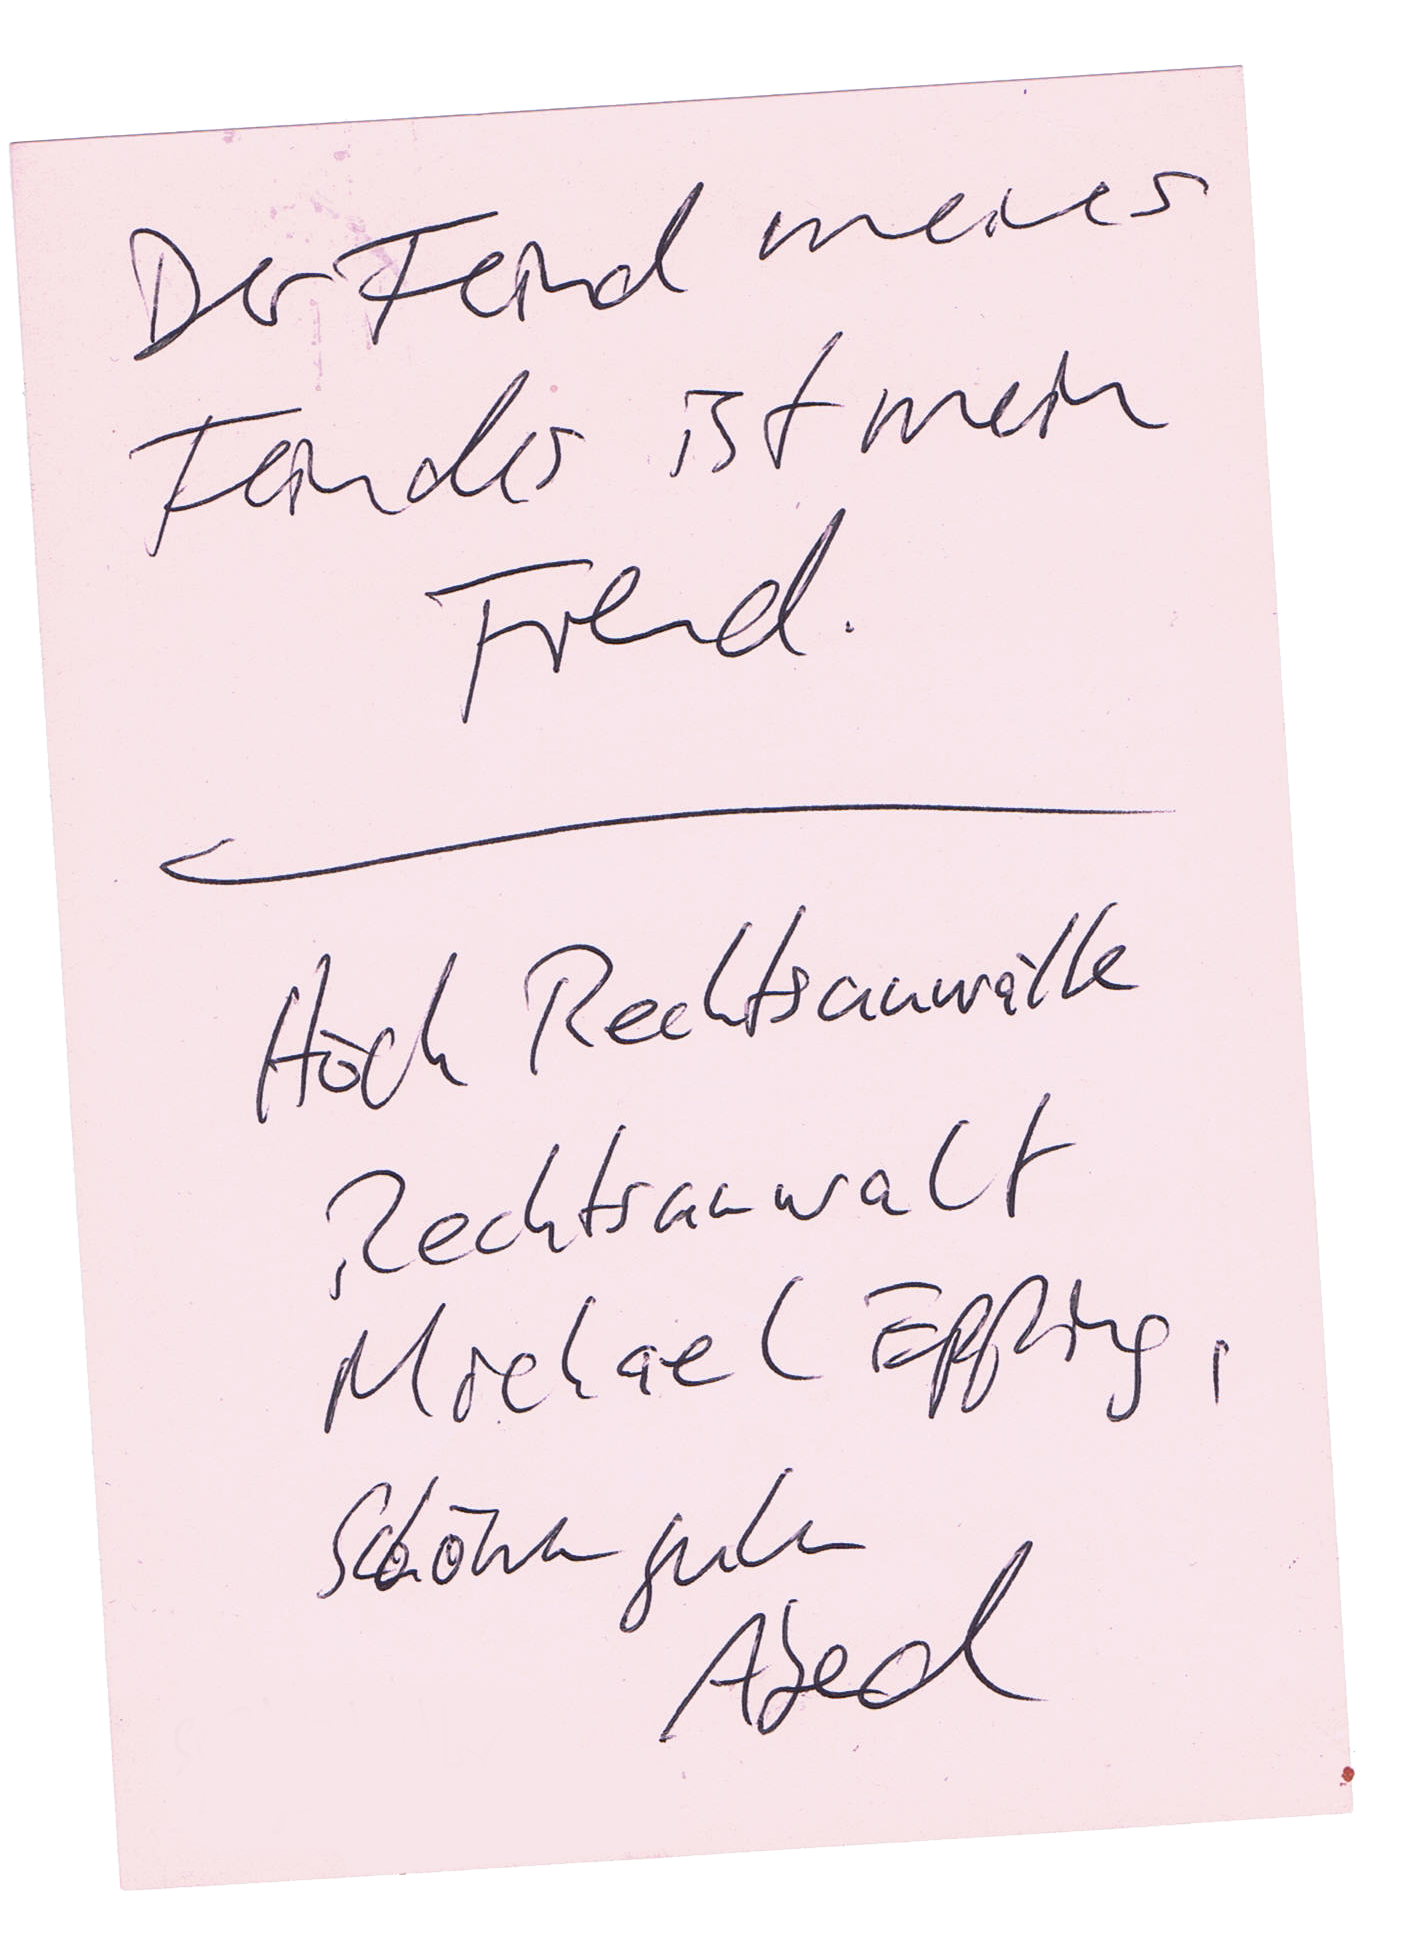 Der Feind meines
Feindes ist mein
Freund.
Höch Rechtsanwälte
Rechtsanwalt
Michael Epping,
Schönen guten
Abend